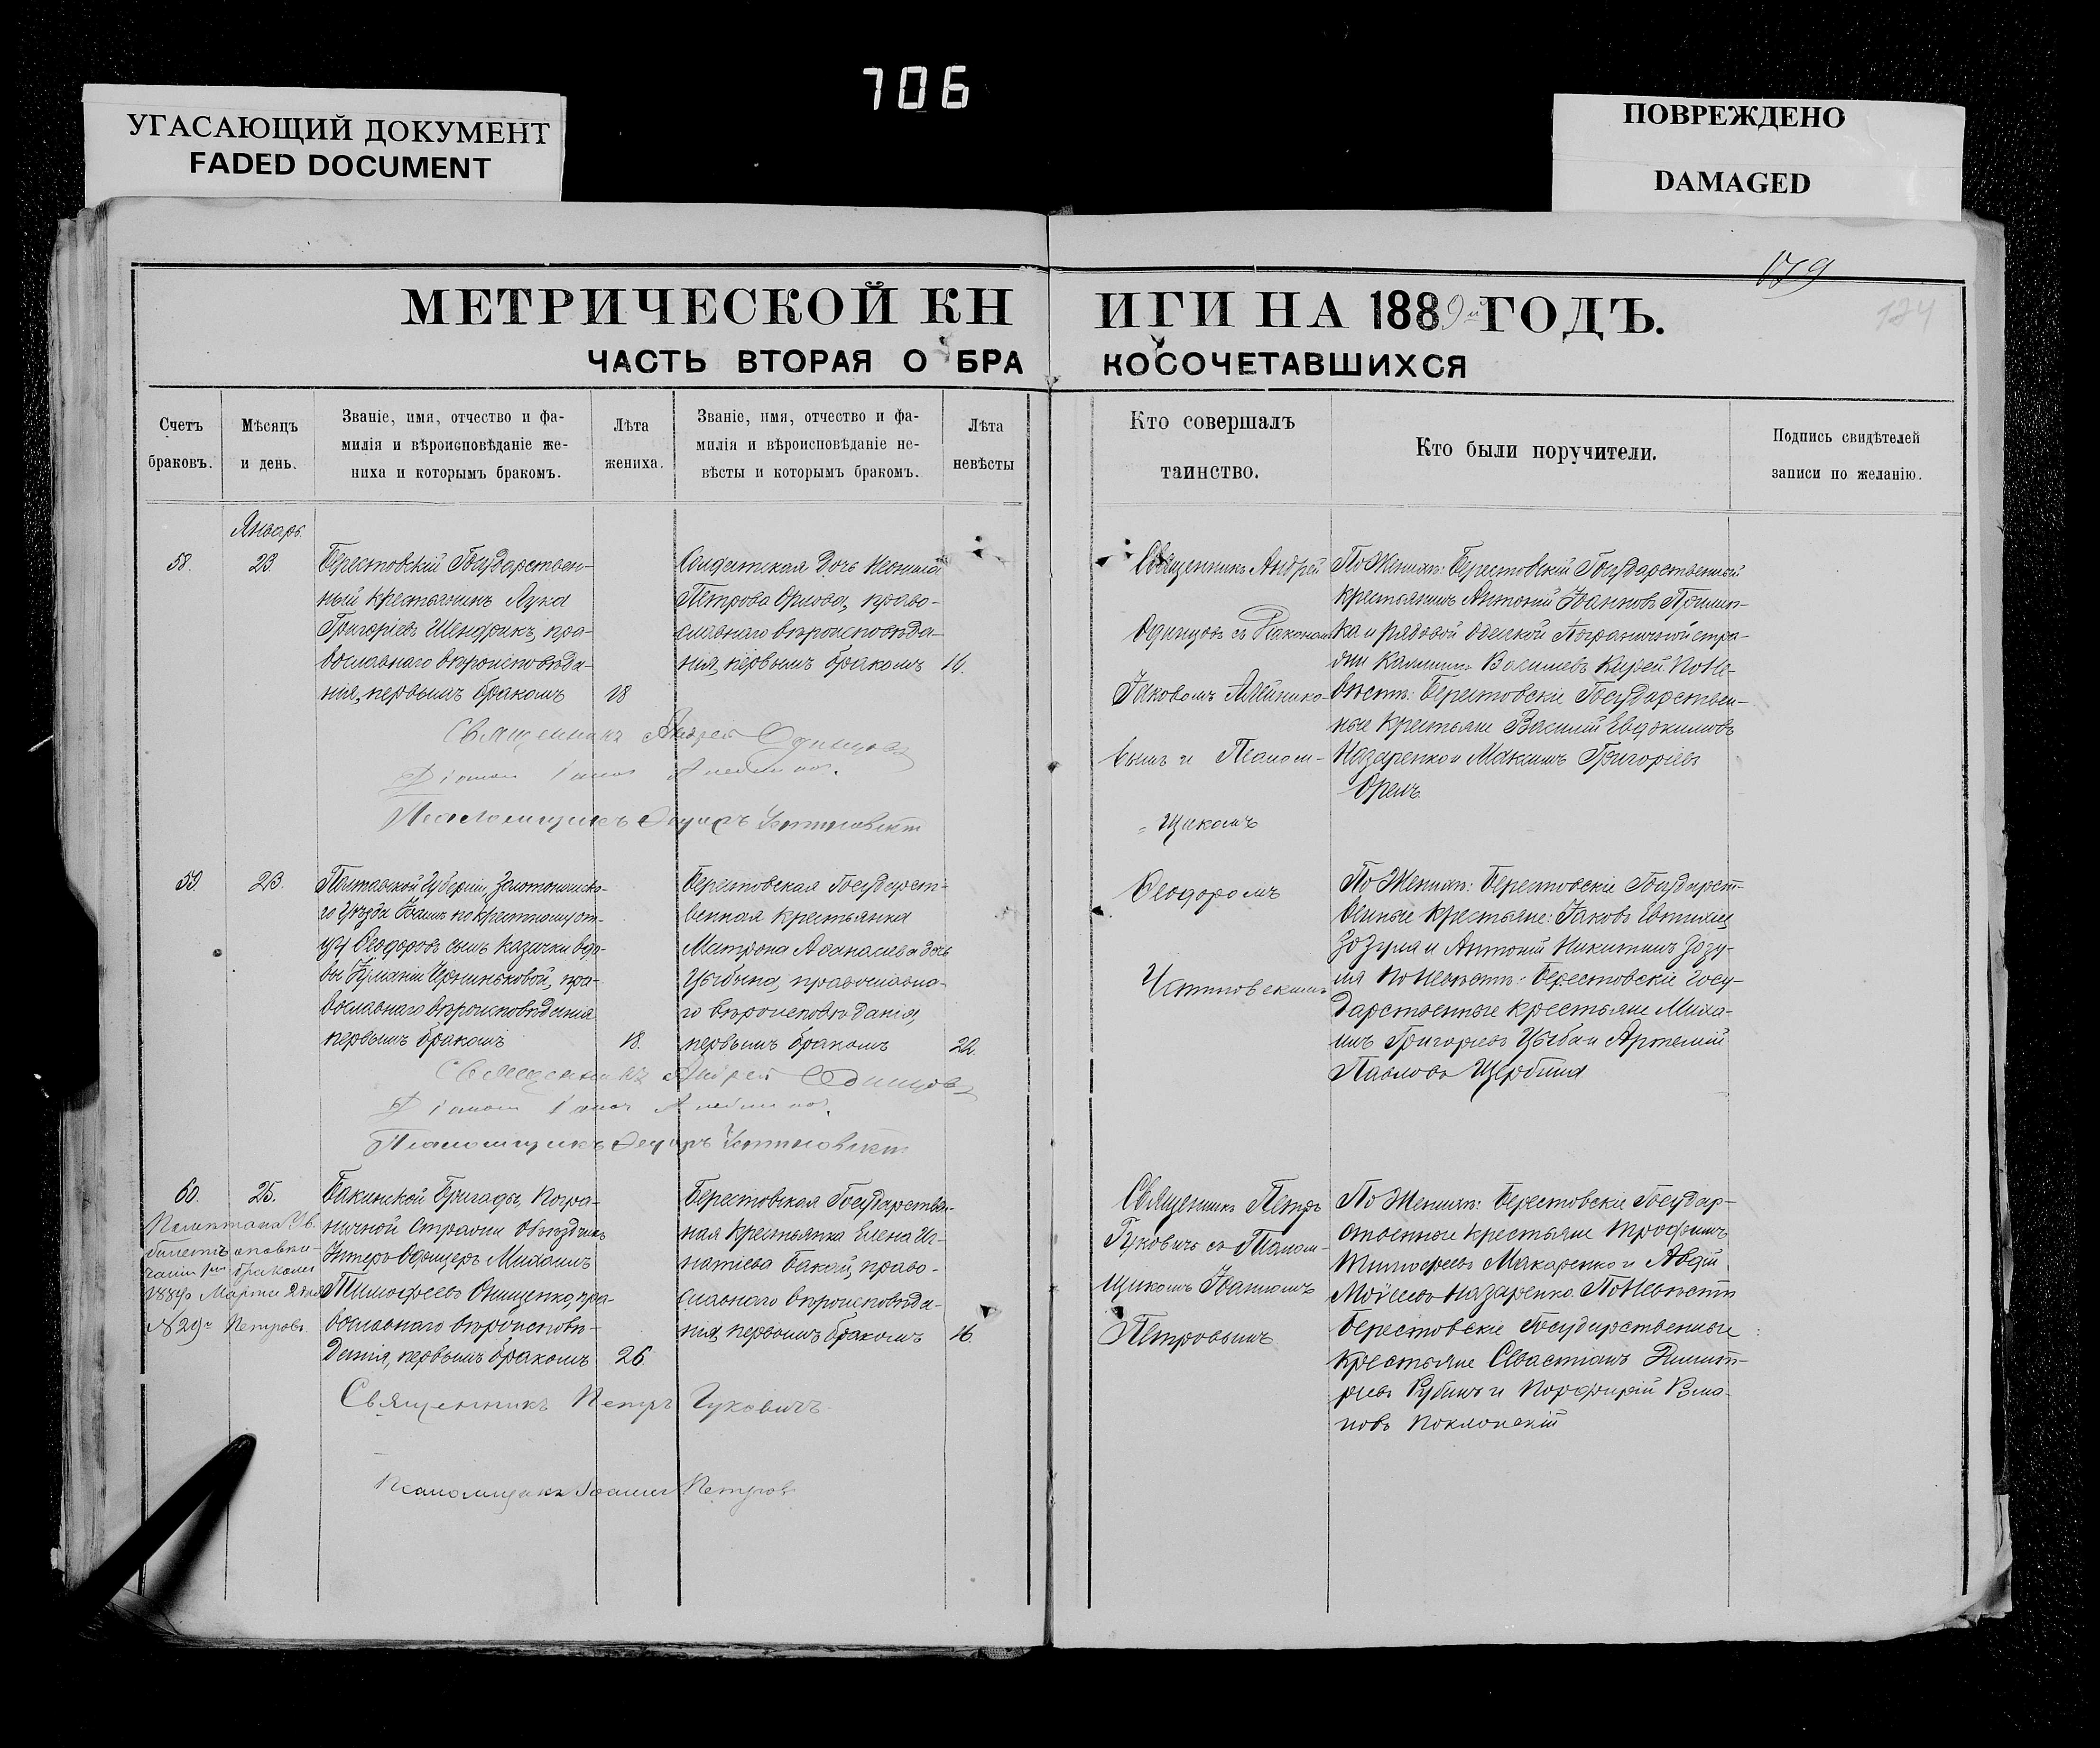 706
УГАСАЮЩИЙ ДОКУМЕНТ
FADED DOCUMENT
ПОВРЕЖДЕНО
DAMAGED
179
124
МЕТРИЧЕСКОЙ КНИГИ НА 1889й ГОДЪ.
ЧАСТЬ ВТОРАЯ О БРАКОСОЧЕТАВШИХСЯ
Счетъ
браковъ.
Мѣсяцъ
и день.
Званіе, имя, отчество и фа-
милія и вѣроисповѣданіе же-
ниха и которымъ бракомъ.
Лѣта
жениха.
Званіе, имя, отчество и фа-
милія и вѣроисповѣданіе не-
вѣсты и которымъ бракомъ.
Лѣта
невѣсты
Кто совершалъ
таинство.
Кто были поручители.
Подпись свидѣтелей
записи по желанію.
Январь.
58.
23.
Берестовскій Государствен-
ный крестьянинъ Лука
Григоріевъ Шендрикъ, пра-
вославнаго вѣроисповѣда-
нія, первымъ бракомъ
18
Солдатская дочь
Петрова Орлова, право-
славнаго вѣроисповѣда-
нія, первымъ бракомъ
Священникъ Андрей
Одинцовъ съ Діакономъ
Іаковомъ Алейнико-
вымъ и Псалом-
щикомъ
Ѳеодоромъ
Устиновскимъ
По Жениху: Берестовскій Государственный
крестьянинъ Антоній Іоанновъ
и рядовой Одесской Пограничной стра-
жи По Не-
вѣстѣ: Берестовскіе Государствен-
ные крестьяне Василій Евдокимовъ
Назаренко и Максимъ Григоріевъ
Орелъ.
Священникъ Андрей Одинцовъ
Діаконъ Іаковъ Алейниковъ.
Псаломщикъ Ѳеодоръ Устиновскій
59.
23.
Полтавской Губерніи, Золотоношска-
го Уѣзда Іоаннъ по крестному от-
цу Ѳеодоровъ сынъ казачки вдо-
вы, пра-
вославнаго вѣроисповѣданія
первымъ бракомъ
18.
Берестовская Государст-
венная крестьянка
Матрона Аѳанасіева дочь
Цыбына, православна-
го вѣроисповѣданія,
первымъ бракомъ
22.
По Жениху: Берестовскіе Государст-
венные крестьяне: Іаковъ Евтихіевъ
Зозуля и Антоній Никитинъ Зозу-
ля По Невѣстѣ: Берестовскіе Госу-
дарственные крестьяне Миха-
илъ Григорьевъ Цыба и Артемій
Павловъ Щербина
Священникъ Андрей Одинцовъ
Діаконъ Іаковъ Алейниковъ.
Псаломщикъ Ѳеодоръ Устиновскій
60.
25.
1889 Марта
№ 29й Петровъ.
Бакинской Бригады, Погра-
ничной Стражи Объѣздчикъ
Унтеръ Офицеръ Михаилъ
Тимоѳеевъ Онищенко, пра-
вославнаго вѣроисповѣ-
данія, первымъ бракомъ
26.
Берестовская Государствен-
ная Крестьянка Елена Иг-
натіева Бакай, право-
славнаго вѣроисповѣда-
нія, первымъ бракомъ
16.
Священникъ Петръ
Гуковичъ съ Псалом-
щикомъ Іоанномъ
Петровымъ
По Жениху: Берестовскіе Государ-
ственные крестьяне Трофимъ
Тимоѳеевъ Макаренко и Авдій
Моѵсеевъ Назаренко. По Невѣстѣ
Берестовскіе Государственные
крестьяне Севастіанъ Димит-
ріевъ Рубинъ и Порфирій
Поклонскій
Священникъ Петръ Гуковичъ.
Псаломщикъ Іоаннъ Петровъ